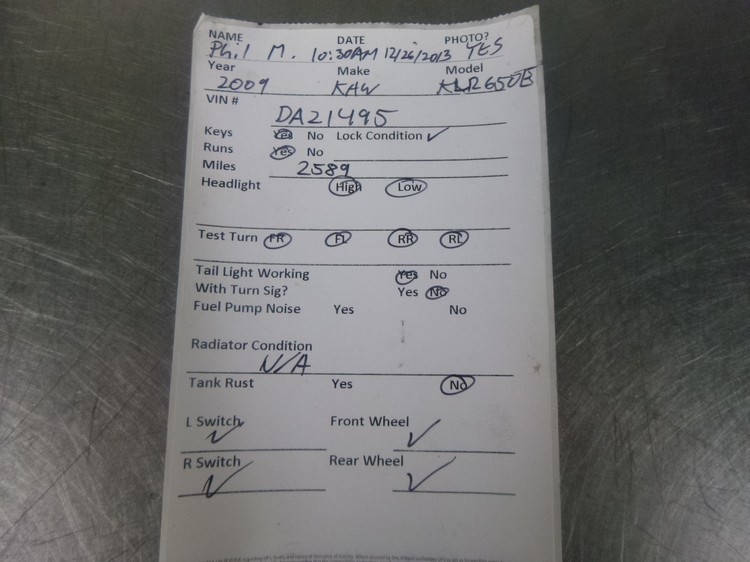 NAME DATE PHOTO?
Phil M. 10:30AM 12/26/2013 YES
Year Make Model
2009 KAW KLR650E
VIN #
DA21495
Keys Yes No Lock Condition ✓
Runs Yes No
Miles 2589
Headlight High Low
Test Turn FR FL RR RL
Tail Light Working Yes No
With Turn Sig? Yes No
Fuel Pump Noise Yes No
Radiator Condition
N/A
Tank Rust Yes No
L Switch ✓ Front Wheel ✓
R Switch ✓ Rear Wheel ✓